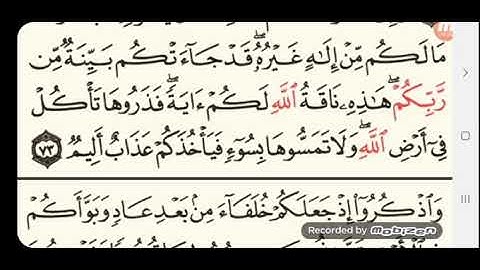 مَا لَكُم مِّنْ إِلَٰهٍ غَيْرُهُۥۖ قَدْ جَآءَتْكُم بَيِّنَةٌ مِّن
رَّبِّكُمْۖ هَٰذِهِۦ نَاقَةُ ٱللَّهِ لَكُمْ ءَايَةًۖ فَذَرُوهَا تَأْكُلْ
فِىٓ أَرْضِ ٱللَّهِۖ وَلَا تَمَسُّوهَا بِسُوٓءٍ فَيَأْخُذَكُمْ عَذَابٌ أَلِيمٌ ٧٣
وَٱذْكُرُوٓا۟ إِذْ جَعَلَكُمْ خُلَفَآءَ مِنۢ بَعْدِ عَادٍ وَبَوَّأَكُمْ
Recorded by mobizen